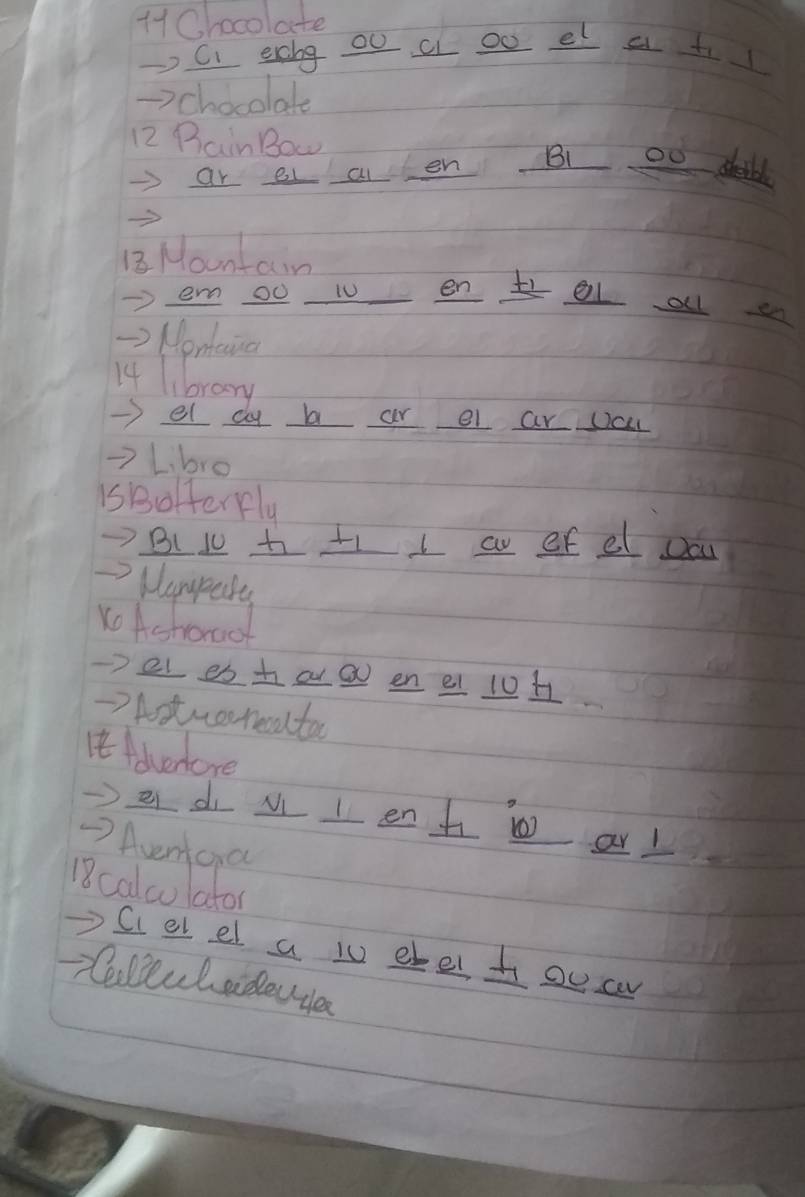 11 Chocolate
→ Ci eichg ou ci ou el ei ti i
→ Chocolate
12 RainBow
→ ar ei ai en Bi ou
→
13 Mountain
→ em ou iu en ti ei ai en
→ Montaña
14 library
→ el ay bi ar ei ar uai
→ Libro
15 Botterfly
→ Bi iu ti ti i ar ef el uai
→
16
→ ei es ti ar ou en ei iu ti
→
17 Adventore
→ ei di vi i en ti iu ar i
→ Aventura
18 calculator
→ Ci ei el ci iu el ei ti ou ar
→